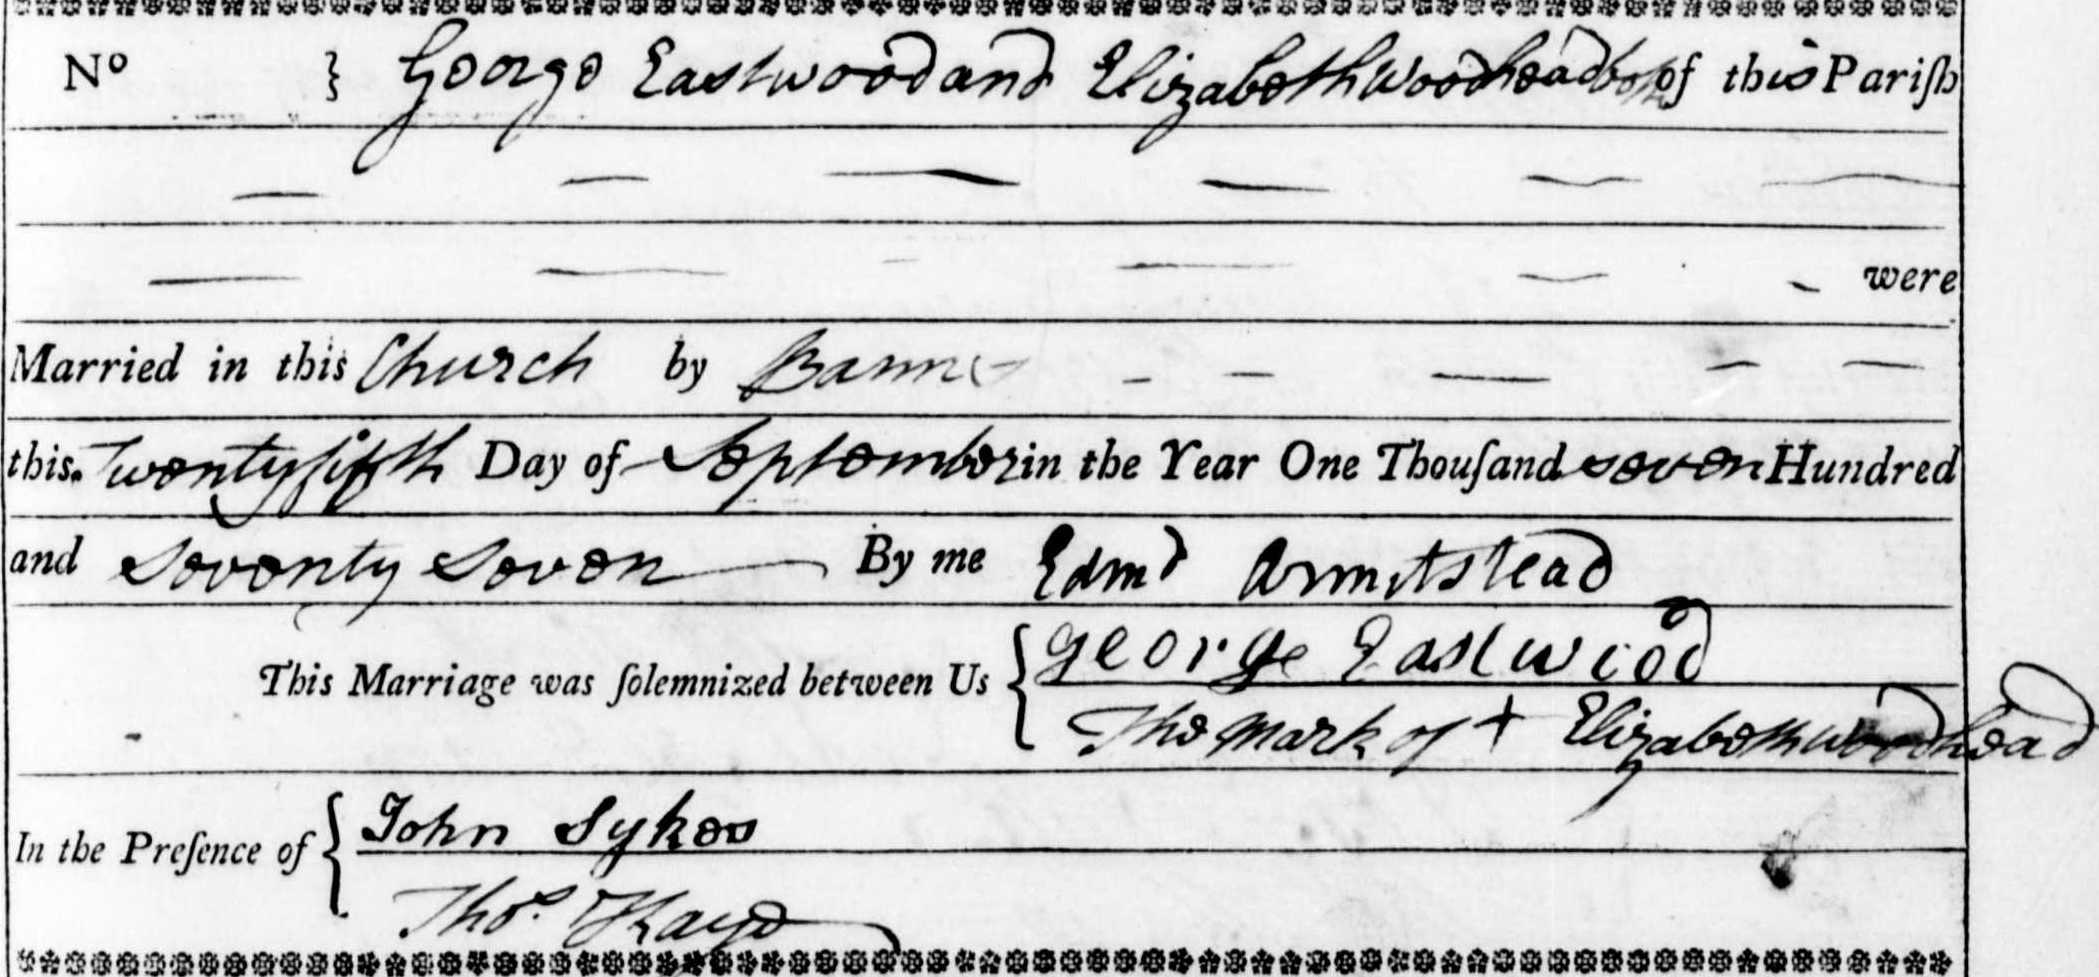 No } George Eastwood and Elizabeth Woodhead both of this Pariſh
were
Married in this Church by Banns
this Twenty fifth Day of September in the Year One Thouſand seven Hundred
and Seventy Seven By me Edmd Armitstead
This Marriage was ſolemnized between Us { George Eastwood
The Mark of + Elizabeth Woodhead
In the Preſence of { John Sykes
Thos. Kaye